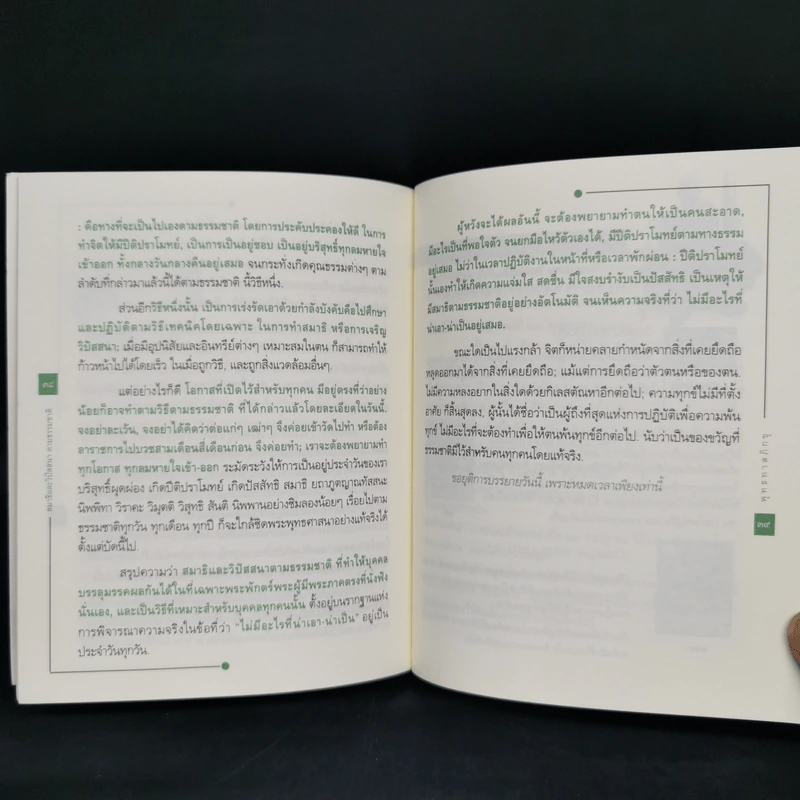 : คือทางที่จะเป็นไปเองตามธรรมชาติ โดยการประคับประคองให้ดี ในการ
ทำจิตให้มีปีติปราโมทย์, เป็นการเป็นอยู่ชอบ เป็นอยู่บริสุทธิ์ทุกลมหายใจ
เข้าออก ทั้งกลางวันกลางคืนอยู่เสมอ จนกระทั่งเกิดคุณธรรมต่างๆ ตาม
ลำดับที่กล่าวมาแล้วนี้ได้ตามธรรมชาติ นี้วิธีหนึ่ง.
ส่วนอีกวิธีหนึ่งนั้น เป็นการเร่งรัดเอาด้วยกำลังบังคับคือไปศึกษา
และปฏิบัติตามวิธีเทคนิคโดยเฉพาะ ในการทำสมาธิ หรือการเจริญ
วิปัสสนา; เมื่อมีอุปนิสัยและอินทรีย์ต่างๆ เหมาะสมในตน ก็สามารถทำให้
ก้าวหน้าไปได้โดยเร็ว ในเมื่อถูกวิธี, และถูกสิ่งแวดล้อมอื่นๆ.
แต่อย่างไรก็ดี โอกาสที่เปิดไว้สำหรับทุกคน มีอยู่ตรงที่ว่าอย่าง
น้อยก็อาจทำตามวิธีตามธรรมชาติ ที่ได้กล่าวแล้วโดยละเอียดในวันนี้.
จงอย่าละเว้น, จงอย่าได้คิดว่าต่อแก่ๆ เฒ่าๆ จึงค่อยเข้าวัดไปทำ หรือต้อง
ลาราชการไปบวชสามเดือนสี่เดือนก่อน จึงค่อยทำ; เราจะต้องพยายามทำ
ทุกโอกาส ทุกลมหายใจเข้า-ออก ระมัดระวังให้การเป็นอยู่ประจำวันของเรา
บริสุทธิ์ผุดผ่อง เกิดปีติปราโมทย์ เกิดปัสสัทธิ สมาธิ ยถาภูตญาณทัสสนะ
นิพพิทา วิราคะ วิมุตติ วิสุทธิ สันติ นิพพานอย่างชิมลองน้อยๆ เรื่อยไปตาม
ธรรมชาติทุกวัน ทุกเดือน ทุกปี ก็จะใกล้ชิดพระพุทธศาสนาอย่างแท้จริงได้
ตั้งแต่บัดนี้ไป.
สรุปความว่า สมาธิและวิปัสสนาตามธรรมชาติ ที่ทำให้บุคคล
บรรลุมรรคผลกันได้ในที่เฉพาะพระพักตร์พระผู้มีพระภาคตรงที่นั่งฟัง
นั่นเอง, และเป็นวิธีที่เหมาะสำหรับบุคคลทุกคนนั้น ตั้งอยู่บนรากฐานแห่ง
การพิจารณาความจริงในข้อที่ว่า "ไม่มีอะไรที่น่าเอา-น่าเป็น" อยู่เป็น
ประจำวันทุกวัน.
๓๘
สมาธิและวิปัสสนา ตามธรรมชาติ
ผู้หวังจะได้ผลอันนี้ จะต้องพยายามทำตนให้เป็นคนสะอาด,
มีอะไรเป็นที่พอใจตัว จนยกมือไหว้ตัวเองได้, มีปีติปราโมทย์ตามทางธรรม
อยู่เสมอ ไม่ว่าในเวลาปฏิบัติงานในหน้าที่หรือเวลาพักผ่อน : ปีติปราโมทย์
นั้นเองทำให้เกิดความแจ่มใส สดชื่น มีใจสงบรำงับเป็นปัสสัทธิ เป็นเหตุให้
มีสมาธิตามธรรมชาติอยู่อย่างอัตโนมัติ จนเห็นความจริงที่ว่า ไม่มีอะไรที่
น่าเอา-น่าเป็นอยู่เสมอ.
ขณะใดเป็นไปแรงกล้า จิตก็หน่ายคลายกำหนัดจากสิ่งที่เคยยึดถือ
หลุดออกมาได้จากสิ่งที่เคยยึดถือ; แม้แต่การยึดถือว่าตัวตนหรือของตน.
ไม่มีความหลงอยากในสิ่งใดด้วยกิเลสตัณหาอีกต่อไป; ความทุกข์ไม่มีที่ตั้ง
อาศัย ก็สิ้นสุดลง, ผู้นั้นได้ชื่อว่าเป็นผู้ถึงที่สุดแห่งการปฏิบัติเพื่อความพ้น
ทุกข์ ไม่มีอะไรที่จะต้องทำเพื่อให้ตนพ้นทุกข์อีกต่อไป. นับว่าเป็นของขวัญที่
ธรรมชาติมีไว้สำหรับคนทุกคนโดยแท้จริง.
ขอยุติการบรรยายวันนี้ เพราะหมดเวลาเพียงเท่านี้
พุทธทาสภิกขุ
๓๙